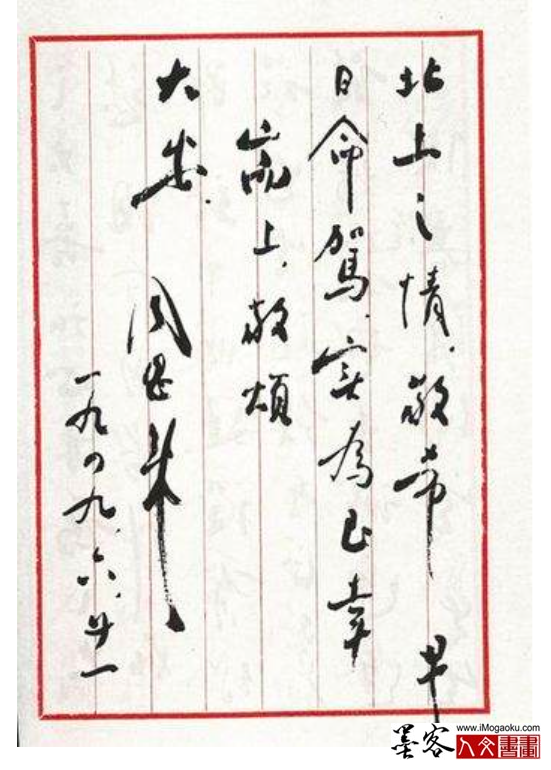 北上之情、敬希 早
日命駕、实為至幸
耑上、敬頌
大安.
周恩来
一九四九、六、廿一
墨客
www.iMogaoku.com
人文書畫